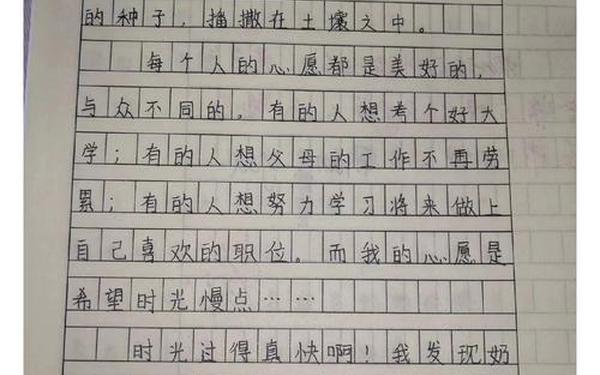 的种子，播撒在土壤之中。
每个人的心愿都是美好的，
与众不同的。有的人想考个好大
学；有的人想父母的工作不再劳
累；有的人想努力学习将来做上
自己喜欢的职位。而我的心愿是
希望时光慢点……
时光过得真快啊！我发现奶